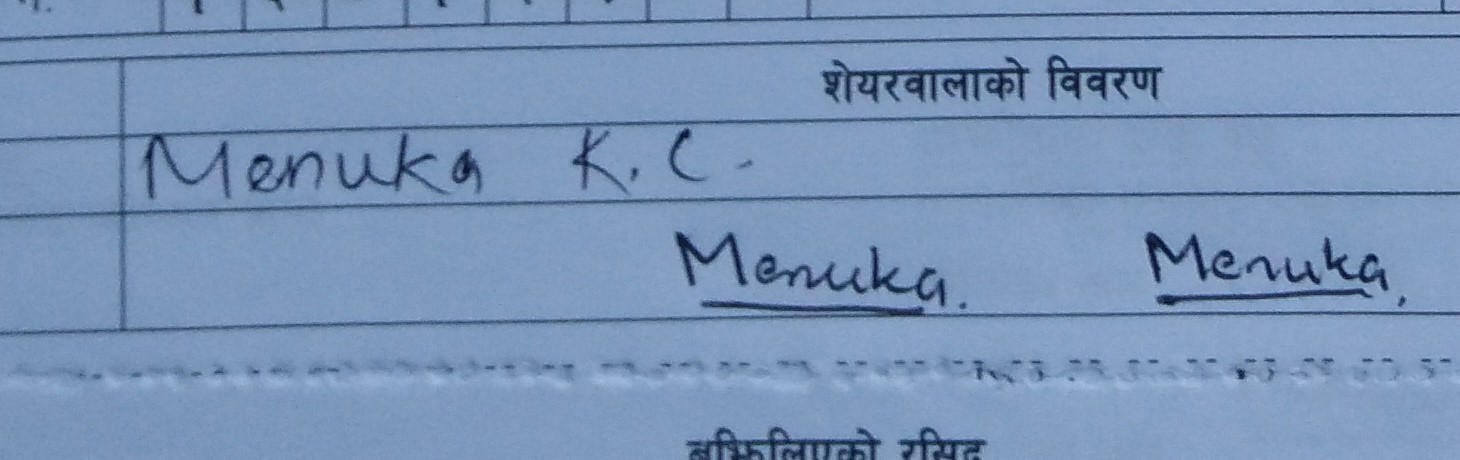 शेयरवालाको विवरण
Menuka K.C.
Menuka. Menuka.
बुझिलिएको रसिद